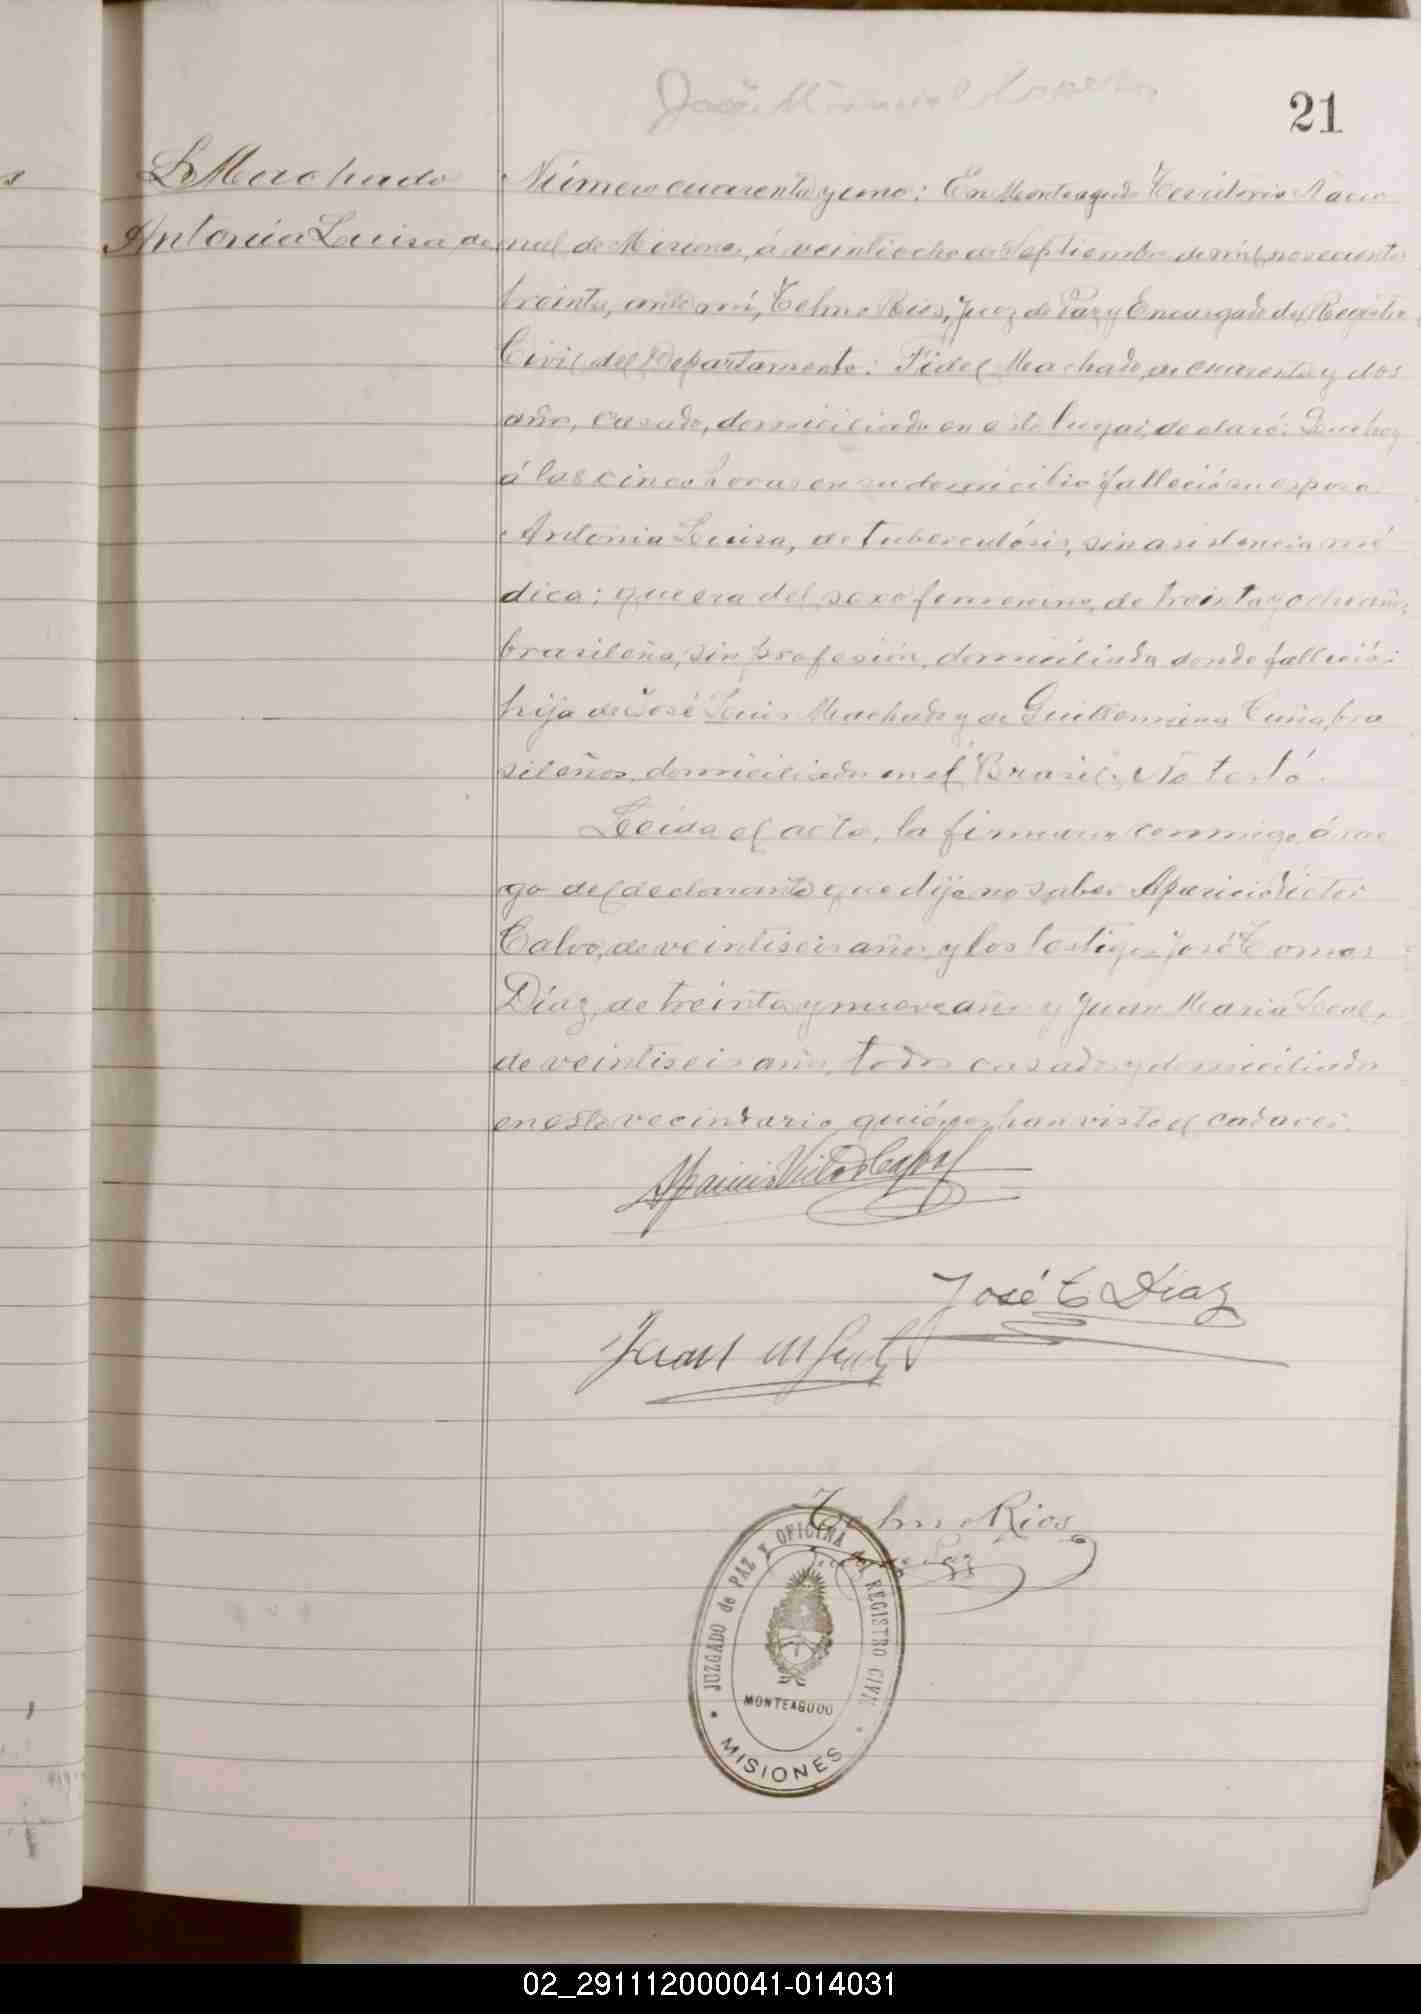 José
21
L. Machado
Antonia Luisa, de
Número cuarenta y uno: En Monteagudo Territorio Nacio
nal de Misiones, á veintiocho de Septiembre de mil novecientos
treinta, ante mí, Telmo Rios, Juez de Paz y Encargado del Registro
Civil del Departamento: Fidel Machado, de cuarenta y dos
años, casado, domiciliado en este lugar, declaró: Que hoy
á las cinco horas en su domicilio falleció su esposa
Antonia Luisa, de tuberculósis, sin asistencia mé
dica; que era del sexo femenino, de treinta y ocho años,
brasileña, sin profesión, domiciliada donde falleció;
hija de José Luis Machado y de Guillermina Cuña, bra
sileños, domiciliados en el Brasil; No testó.
Leida el acta, la firmaron conmigo, á rue
go del declarante que dijo no saber Aparicio Victor
Calvo, de veintiseis años, y los testigos José Tomas
Díaz, de treinta y nueve años y Juan Maria Leal,
de veintiseis años, todos casados y domiciliados
en este vecindario, quiénes han visto el cadaver.
Aparicio Victor Calvo
José T. Diaz
Juan M Leal
Telmo Rios
Juez de Paz
JUZGADO de PAZ Y OFICINA del REGISTRO CIVIL
MONTEAGUDO
MISIONES
02_291112000041-014031